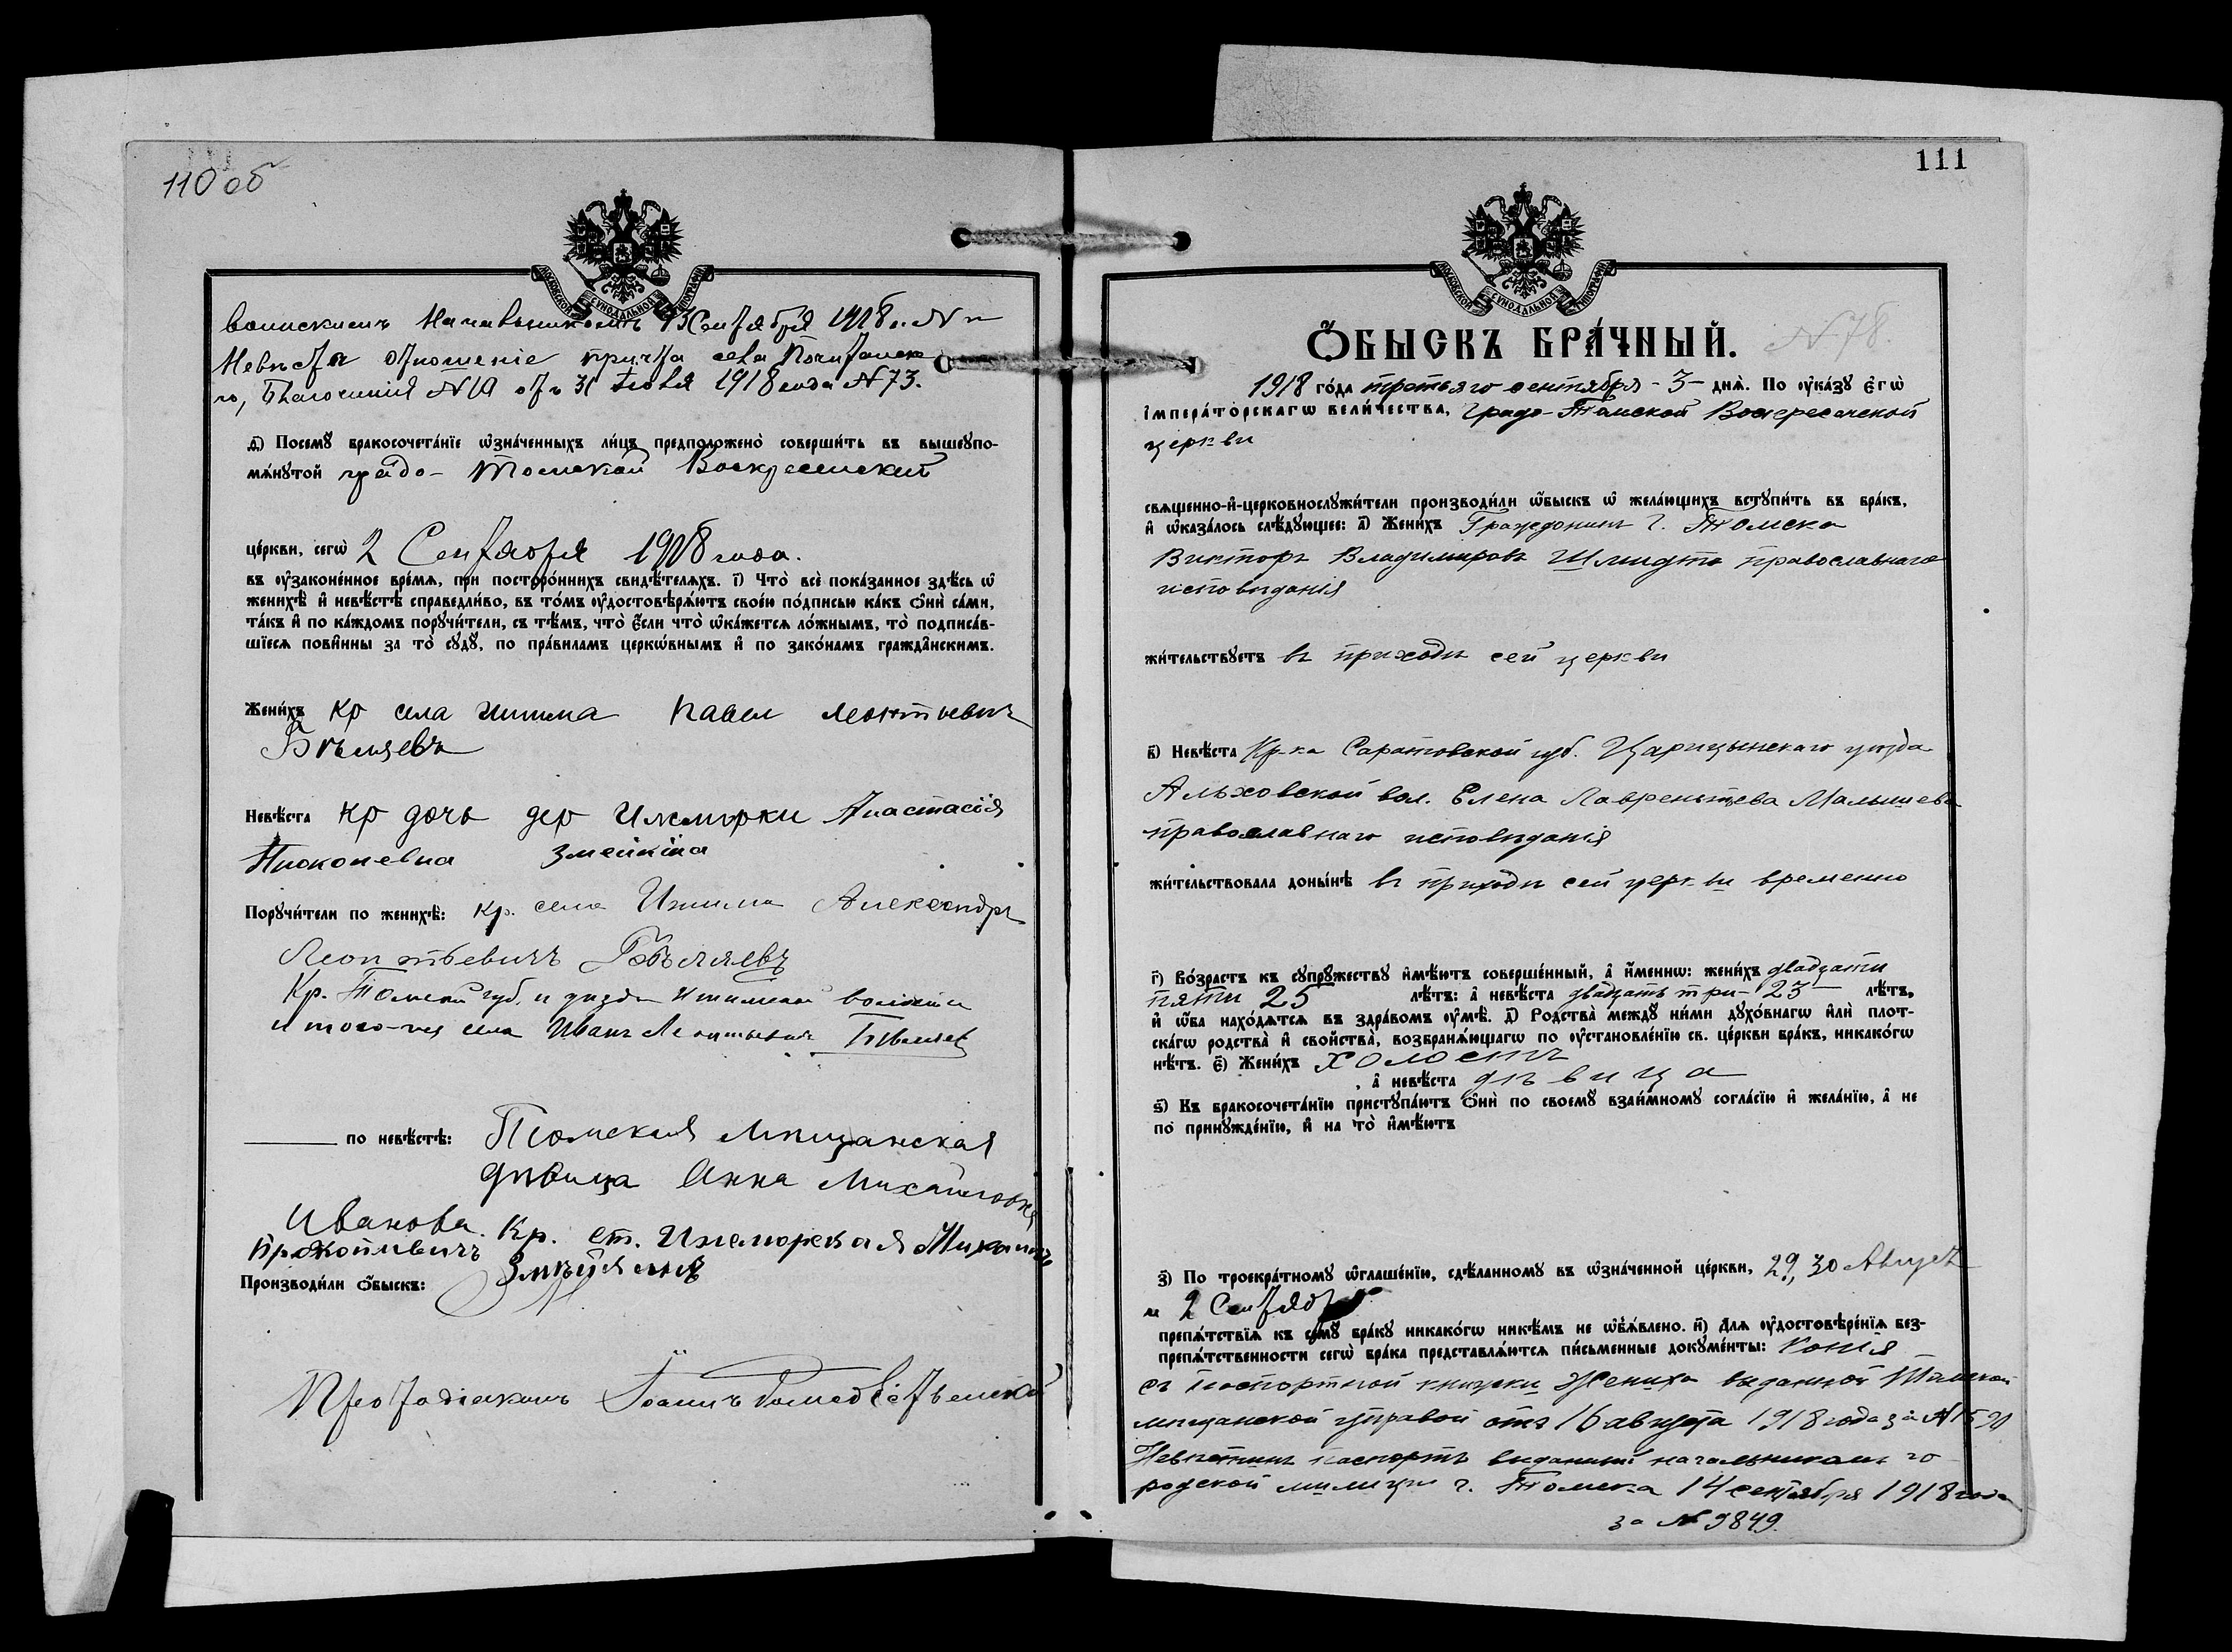 110 об
МОСКОВСКОЙ СѴНОДАЛЬНОЙ ТИПОГРАФІИ
воинскимъ Начальникомъ 13 Сентября 1918 г. №
Невѣста отношеніе причта села Почитанск
го, Благочинія № 10 отъ 31 Іюля 1918 года № 73.
д҃) Посемꙋ̀ бракосочета́нїе ѡ҆зна́ченныхъ ли́цъ предположено̀ соверши́ть въ вышеꙋпо-
мѧ́нꙋтой градо-Томской Воскресенской
це́ркви, сегѡ̀ 2 Сентября 1918 года.
въ ᲂу҆зако́не́нное вре́мѧ, при посторо́ннихъ свидѣ́телѧхъ. і҃) Что̀ всѐ пока́занное здѣ́сь ѡ҆
женихѣ̀ и҆ невѣ́стѣ справедли́во, въ то́мъ ᲂу҆достовѣрѧ́ютъ свое́ю по́дписью ка́къ ѻ҆нѝ са́ми,
та́къ и҆ по ка́ждомъ порꙋчи́тели, съ тѣ́мъ, что̀ є҆́сли что̀ ѡ҆ка́жетсѧ ло́жнымъ, то̀ подписа́в-
шїесѧ пови́нны за то̀ сꙋдꙋ̀, по пра́виламъ церко́внымъ и҆ по зако́намъ гражда́нскимъ.
Жени́хъ Кр села Ишима Павел Леонтьевич
Бѣляевъ
Невѣ́ста Кр дочь дер Ижморки Анастасія
Прокопевна Змейкина
Порꙋчи́тели по женихѣ̀: Кр. села Ишима Александръ
Леонтьевичъ Бѣляевъ
Кр. Томской губ. и уѣзда Ишимской волости
и того-же села Иванъ Леонтьевич Бѣляев
по невѣ́стѣ: Томская Мѣщанская
дѣвица Анна Михайловна
Иванова. Кр. ст. Ижморская Михаилъ
Прокопиевичъ
Производи́ли ѻ҆́быскъ:
Протодіаконъ Іоаннъ
111
МОСКОВСКОЙ СѴНОДАЛЬНОЙ ТИПОГРАФІИ
Ѻ҆́БЫСКЪ БРА́ЧНЫЙ. № 78.
1918 го́да третьяго сентября - 3 - днѧ̀. По ᲂу҆ка́зꙋ є҆гѡ̀
і҆мпера́торскагѡ вели́чества, Градо-Томской Воскресенской
церкви
свѧще́нно-и҆-церковнослꙋжи́тели производи́ли ѡ҆́быскъ ѡ҆ жела́ющихъ встꙋпи́ть въ бра́къ,
и҆ ѡ҆каза́лось слѣ́дꙋющее: а҃) Жени́хъ Гражданинъ г. Томска
Викторъ Владимировъ Шмидтъ православнаго
исповѣданія
жи́тельствꙋетъ въ приходѣ сей церкви
в҃) Невѣ́ста Кр-ка Саратовской губ. Царицынскаго уѣзда
Альховской вол. Елена Лаврентьева Малышева
православнаго исповѣданія
жи́тельствовала доны́нѣ въ приходѣ сей церкви временно
г҃) Во́зрастъ къ сꙋпрꙋ́жествꙋ и҆мѣ́ютъ соверше́нный, а҆ и҆́меннѡ: жени́хъ двадцати
пяти 25 лѣ́тъ: а҆ невѣ́ста двадцать три - 23 лѣ́тъ,
и҆ ѡ҆́ба нахо́дѧтсѧ въ здра́вомъ ᲂу҆мѣ̀. д҃) Родства̀ междꙋ̀ ни́ми дꙋхо́внагѡ и҆лѝ плот-
ска́гѡ родства̀ и҆ свойства̀, возбранѧ́ющагѡ по ᲂу҆становле́нїю св. це́ркви бра́къ, никако́гѡ
нѣ́тъ. є҃) Жени́хъ холостъ
, а҆ невѣ́ста дѣвица
ѕ҃) Къ бракосочета́нїю пристꙋпа́ютъ ѻ҆нѝ по своемꙋ̀ взаи́мномꙋ согла́сїю и҆ жела́нїю, а҆ не
по принꙋжде́нїю, и҆ на то̀ и҆мѣ́ютъ
з҃) По троекра́тномꙋ ѡ҆глаше́нїю, сдѣ́ланномꙋ въ ѡ҆зна́ченной це́ркви, 29, 30 Августа
и 2 Сентября
препѧ́тствїѧ къ семꙋ̀ бра́кꙋ никако́гѡ никѣ́мъ не ѡ҆б̾ѧ́влено. и҃) Длѧ ᲂу҆достовѣре́нїѧ без-
препѧ́тственности сегѡ̀ бра́ка представлѧ́ютсѧ пи́сьменные докꙋме́нты: Копія
съ паспортной книжки Жениха выданной Томской
мѣщанской управой отъ 16 августа 1918 года за №
Невѣстинъ паспортъ выданный начальникомъ го-
родской милиціи г. Томска 14 сентября 1918 года
за № 9849.